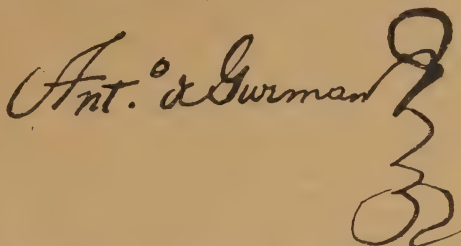 Ant.º de Gurman